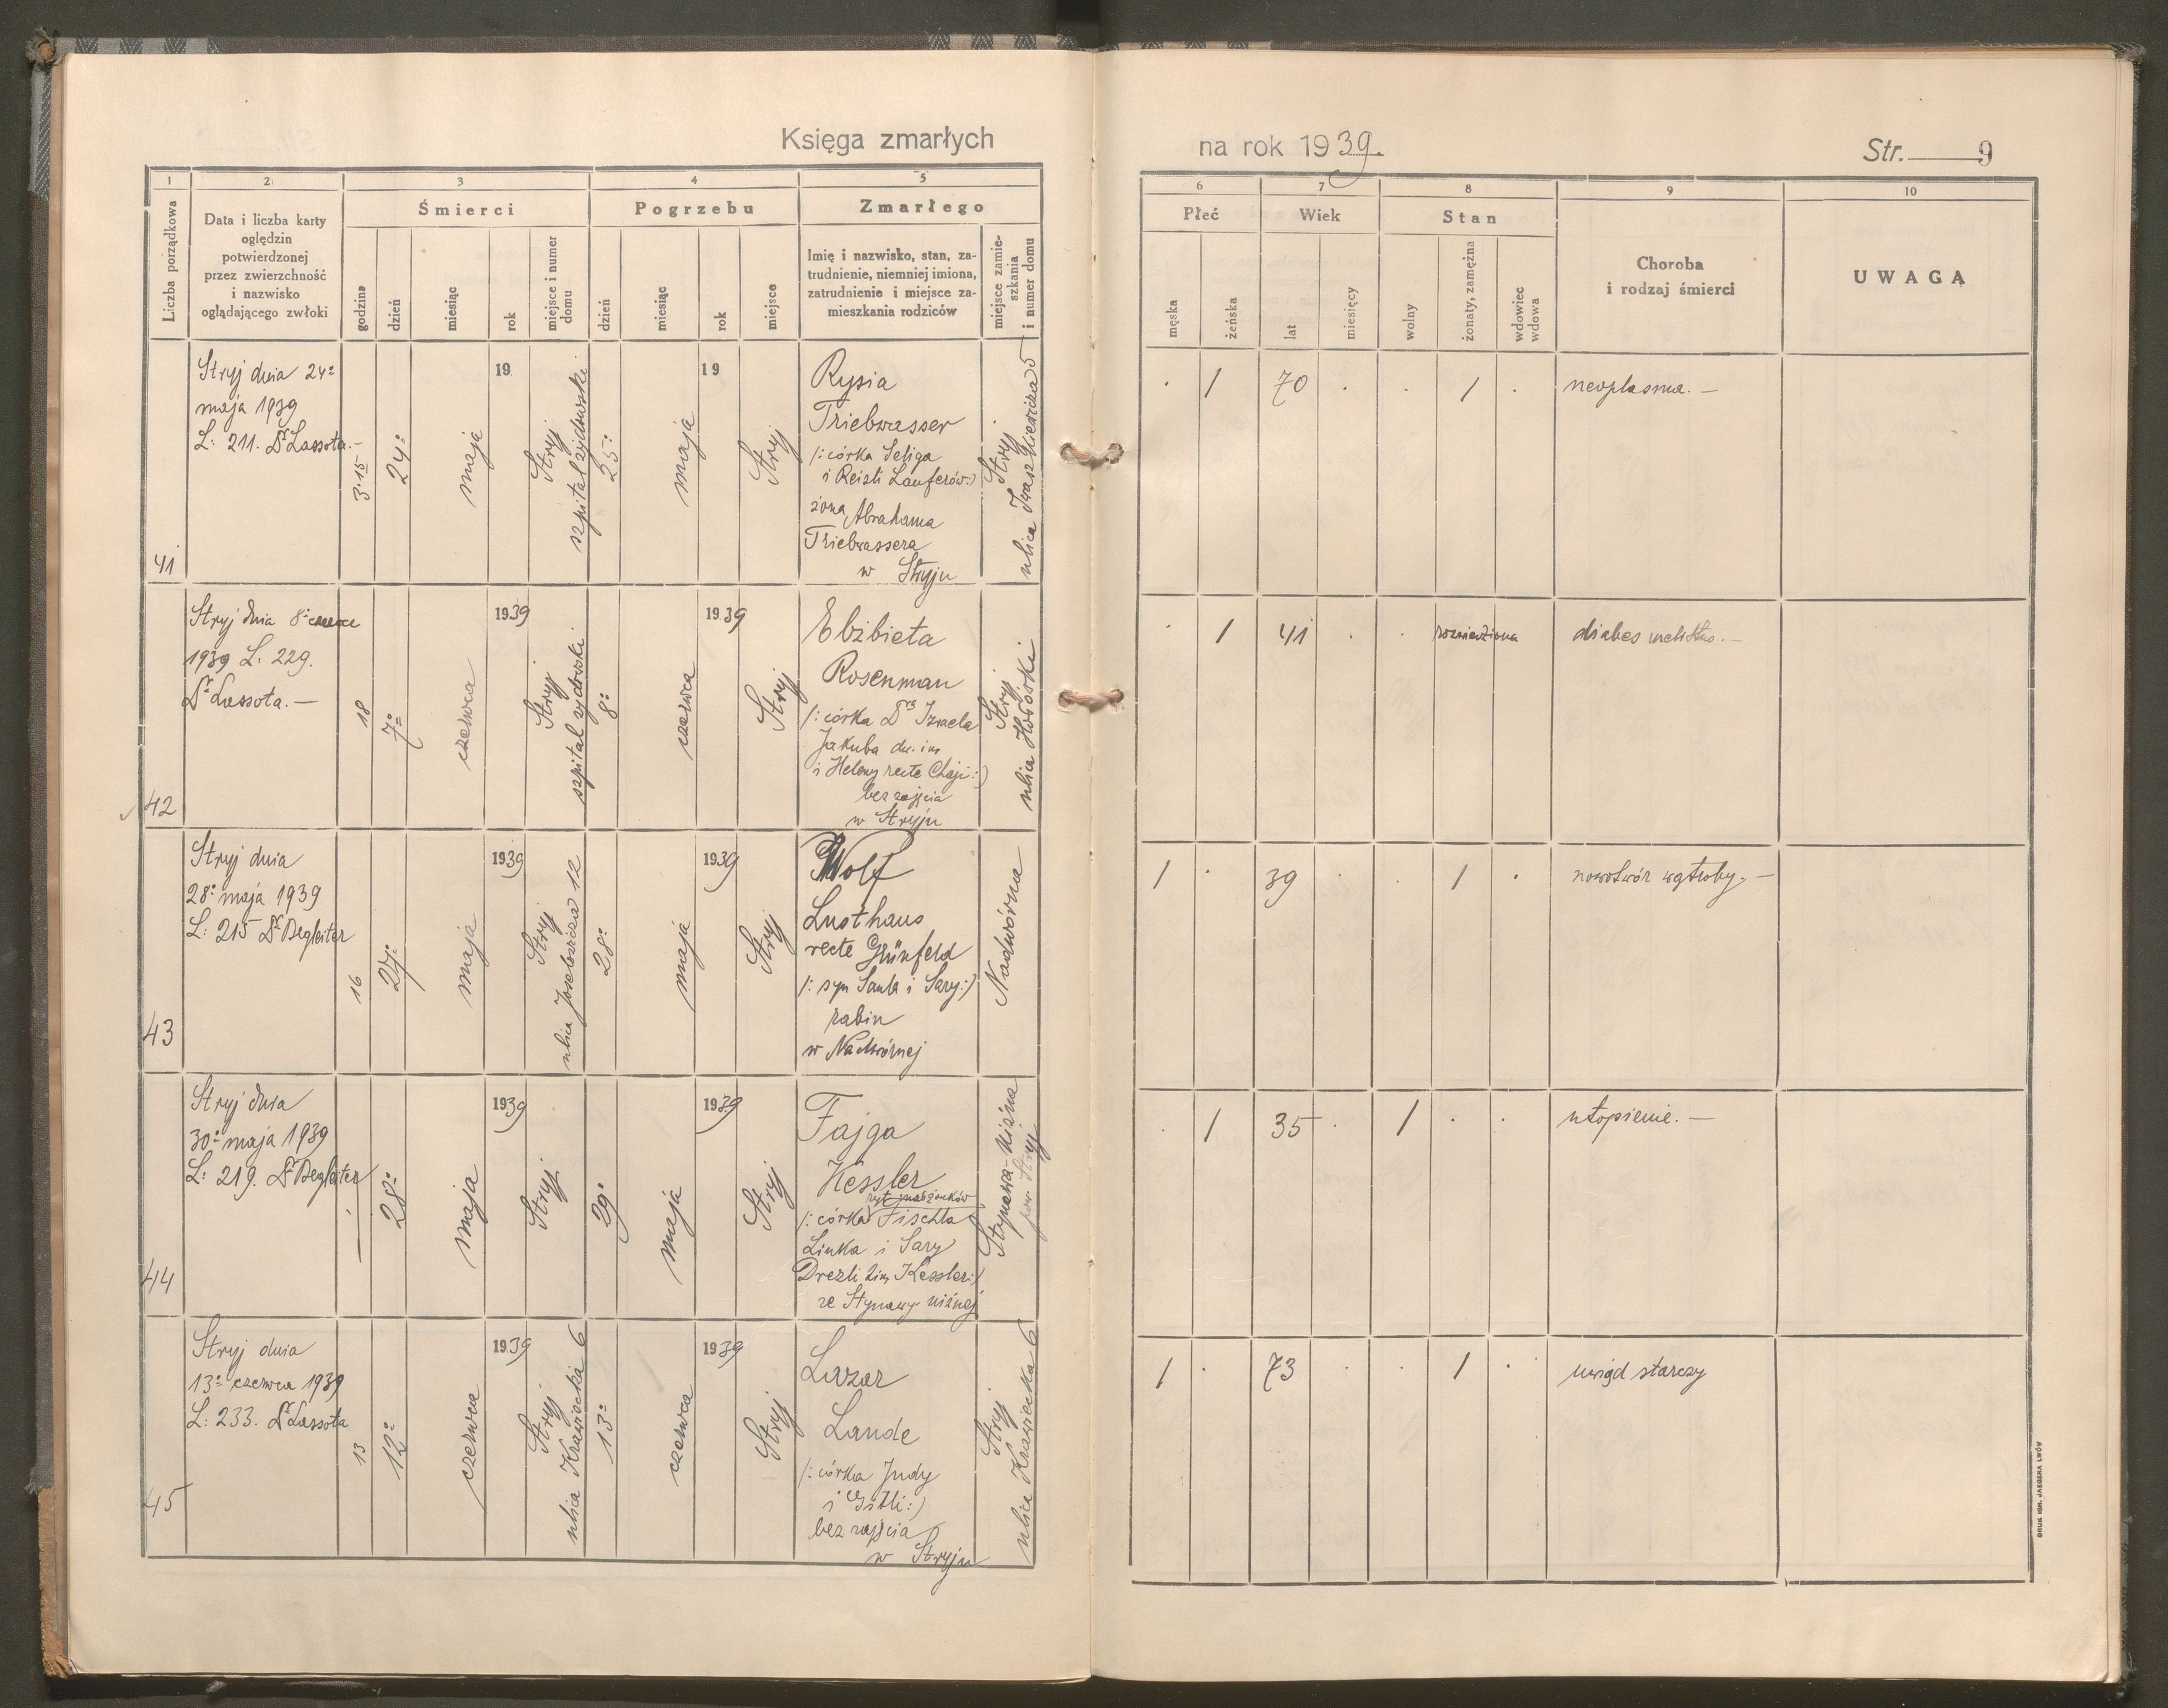 Księga zmarłych
na rok 1939.
Str. 9
1
2
3
4
5
6
7
8
9
10
Liczba porządkowa
Data i liczba karty
oględzin
potwierdzonej
przez zwierzchność
i nazwisko
oglądającego zwłoki
Śmierci
godzina
dzień
miesiąc
rok
miejsce i numer
domu
Pogrzebu
dzień
miesiąc
rok
miejsce
Zmarłego
Imię i nazwisko, stan, za-
trudnienie, niemniej imiona,
zatrudnienie i miejsce za-
mieszkania rodziców
miejsce zamie-
szkania
i numer domu
Płeć
męska
żeńska
Wiek
lat
miesięcy
Stan
wolny
żonaty, zamężna
wdowiec
wdowa
Choroba
i rodzaj śmierci
UWAGA
41
Stryj dnia 24º
maja 1939
L: 211. Dr Lassota.-
3·15
24º
maja
19
Stryj
szpital żydowski
25º
maja
19
Stryj
Rysia
Triebwasser
/: córka Seliga
i Reizli Lauferów:)
żona Abrahama
Triebwassera
w Stryju
Stryj
ulica Iwaszkiewicza 5
. 1 70 . . 1 . neoplasma. —
42
Stryj dnia 8º czerwca
1939 L. 229.
Dr Lassota. —
18
7º
czerwca
1939
Stryj
szpital żydowski
8º
czerwca
1939
Stryj
Elżbieta
Rosenman
/: córka Dra Izraela
Jakuba dw. im
i Heleny recte Chaji:)
bez zajęcia
w Stryju
Stryj
ulica
. 1 41 . . rozwiedziona
43
Stryj dnia
28º maja 1939
L: 215 Dr Begleiter
16
27º
maja
1939
Stryj
ulica Joselewicza 12
28º
maja
1939
Stryj
Wolf
Lusthaus
recte Grünfeld
/: syn Saula i Sary:)
rabin
w Nadwórnej
Nadwórna
1 . 39 . . 1 . nowotwór wątroby. —
44
Stryj dnia
30º maja 1939
L: 219. Dr Begleiter
28º
maja
1939
Stryj
29º
maja
1939
Stryj
Fajga
Kessler
ryt. małżonków
/: córka Fischla
Linka i Sary
Drezli 2im. Kessler:/
ze Stynawy niżnej
Stynawa-niżna
pow. Stryj
. 1 35 . 1 . . utopienie. —
45
Stryj dnia
13º czerwca 1939
L: 233. Dr Lassota
13
12º
czerwca
1939
Stryj
ulica Krawiecka 6
13º
czerwca
1939
Stryj
Lazar
Lande
/: córka Judy
i Gitli:)
bez zajęcia
w Stryju
Stryj
ulica Krawiecka 6
1 . 73 . . 1 . uwiąd starczy
DRUK IGN. JAEGERA LWÓW